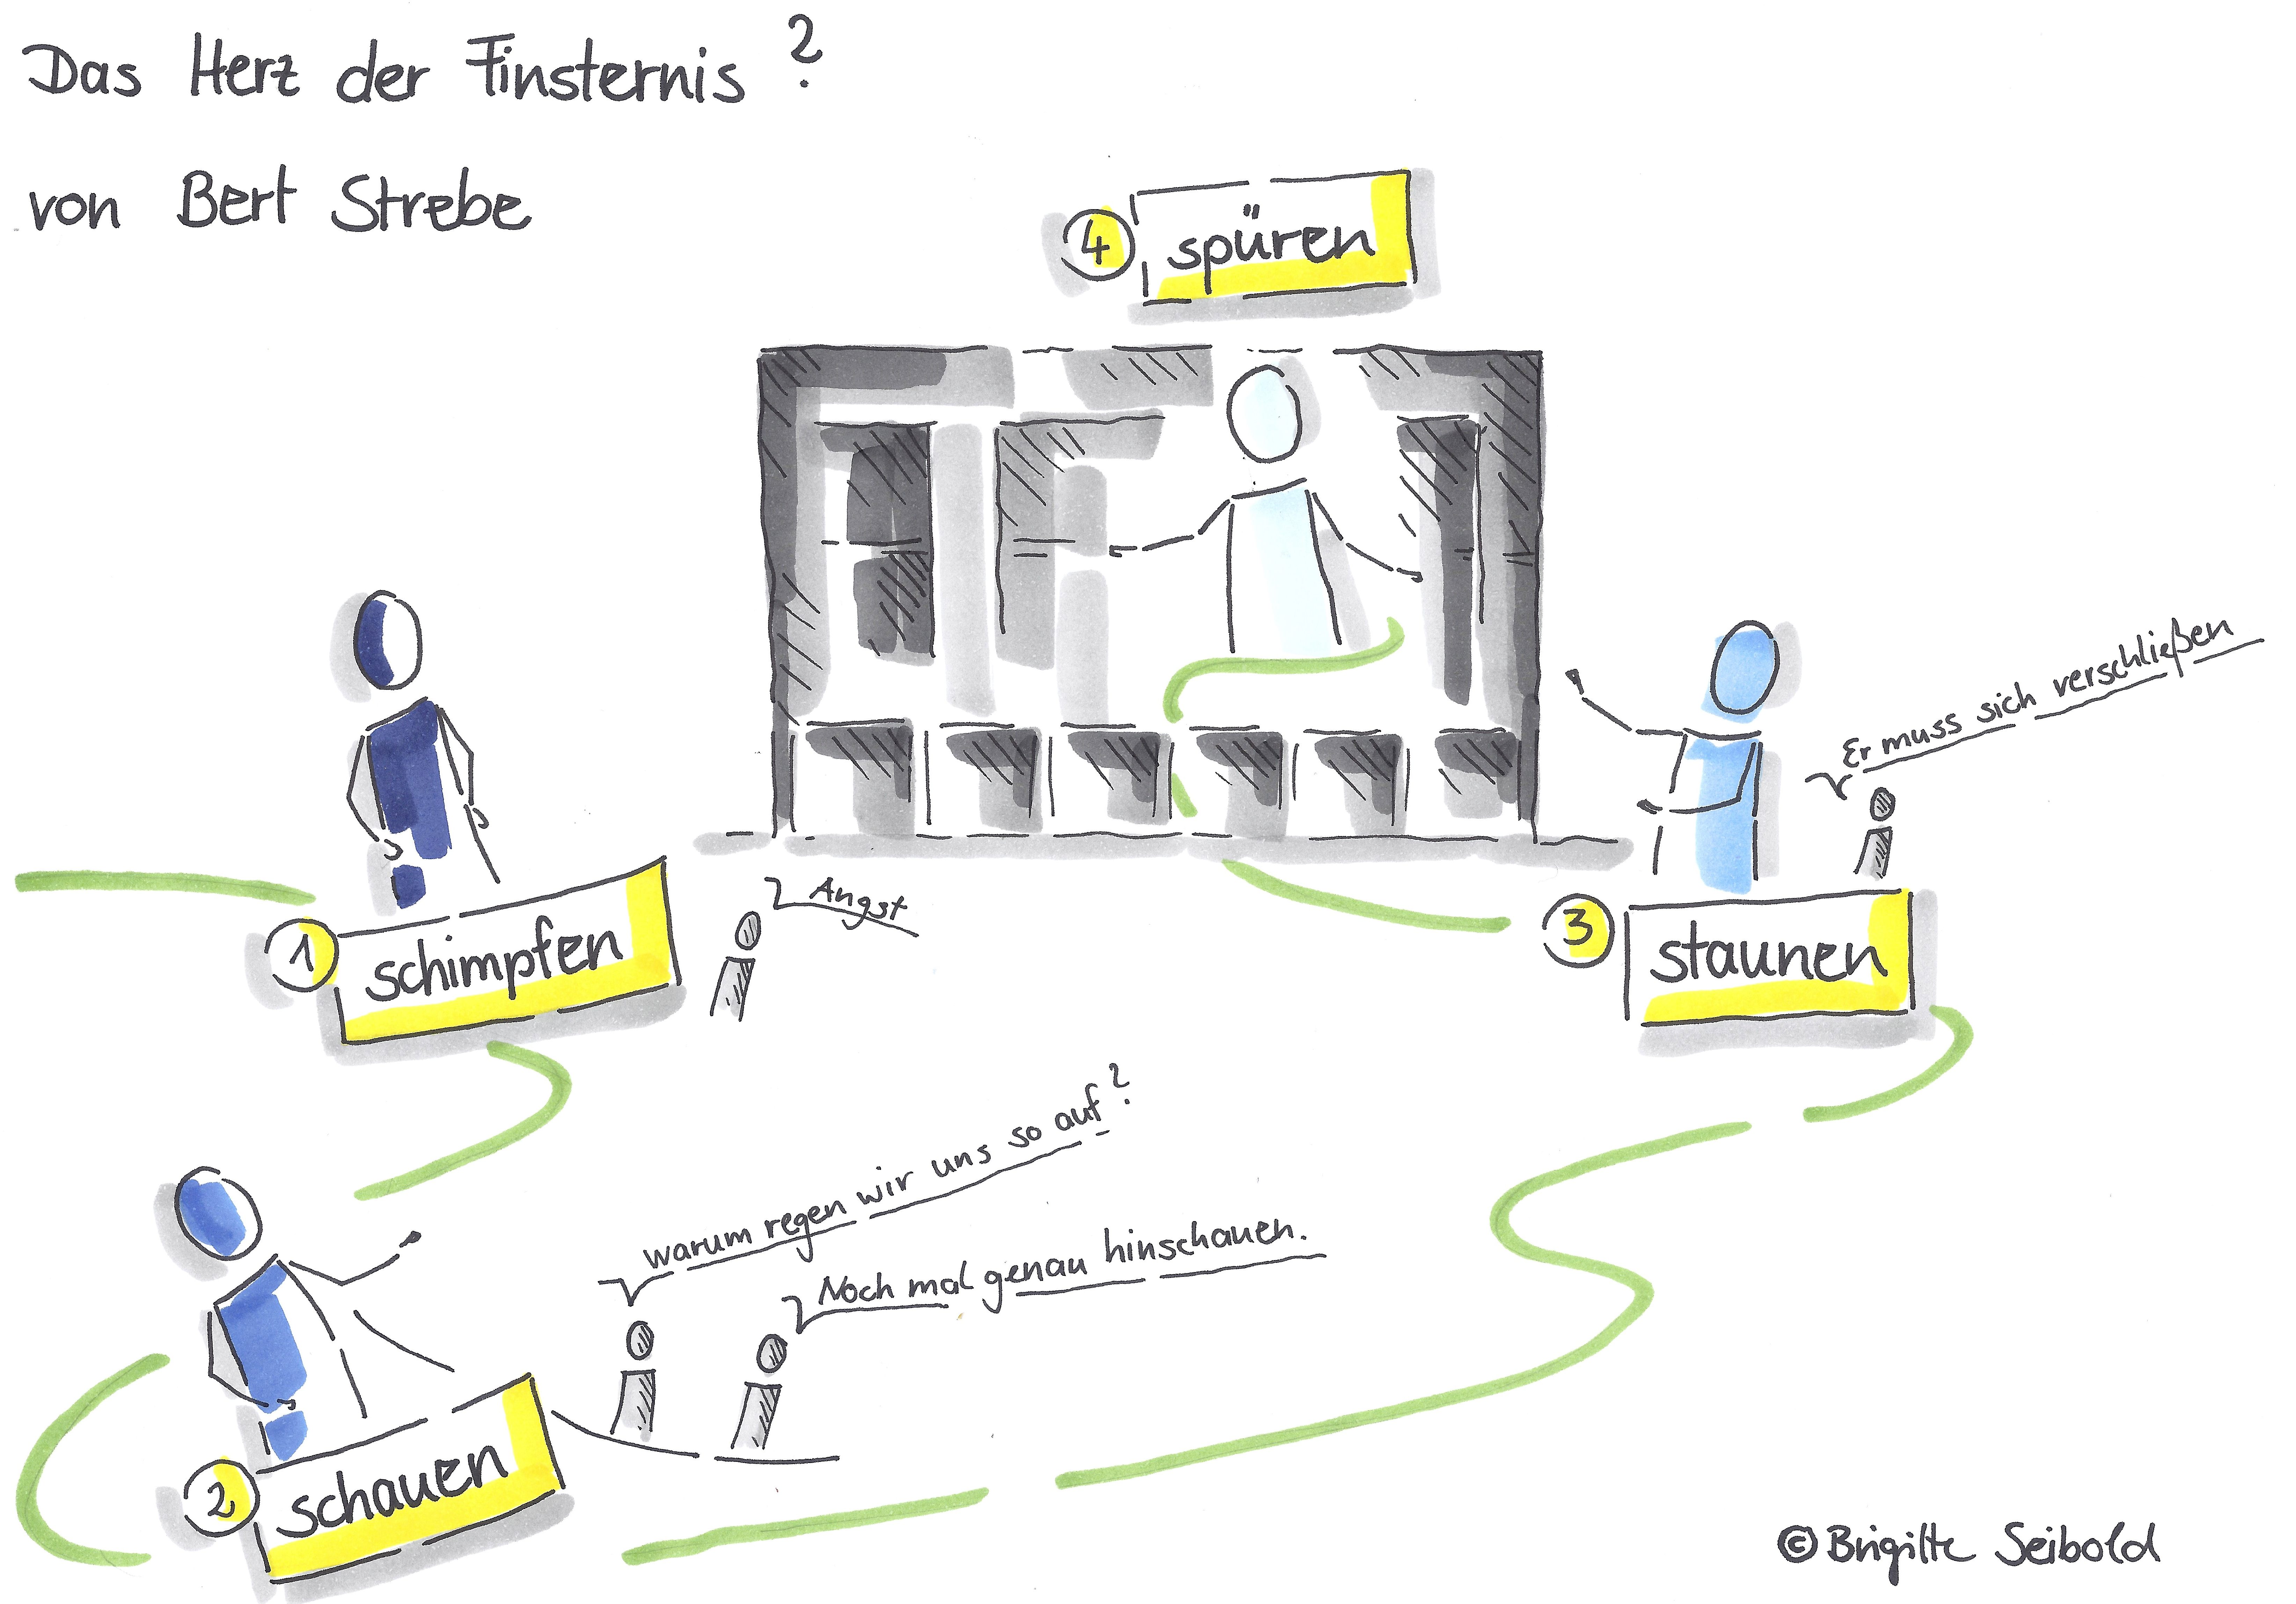 Das Herz der Finsternis?
von Bert Strebe
4 spüren
Er muss sich verschließen
1 schimpfen
Angst
3 staunen
warum regen wir uns so auf?
Noch mal genau hinschauen.
2 schauen
© Brigitte Seibold